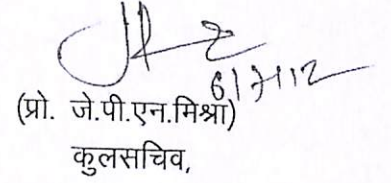 6/7/12
(प्रो. जे.पी.एन.मिश्रा)
कुलसचिव,